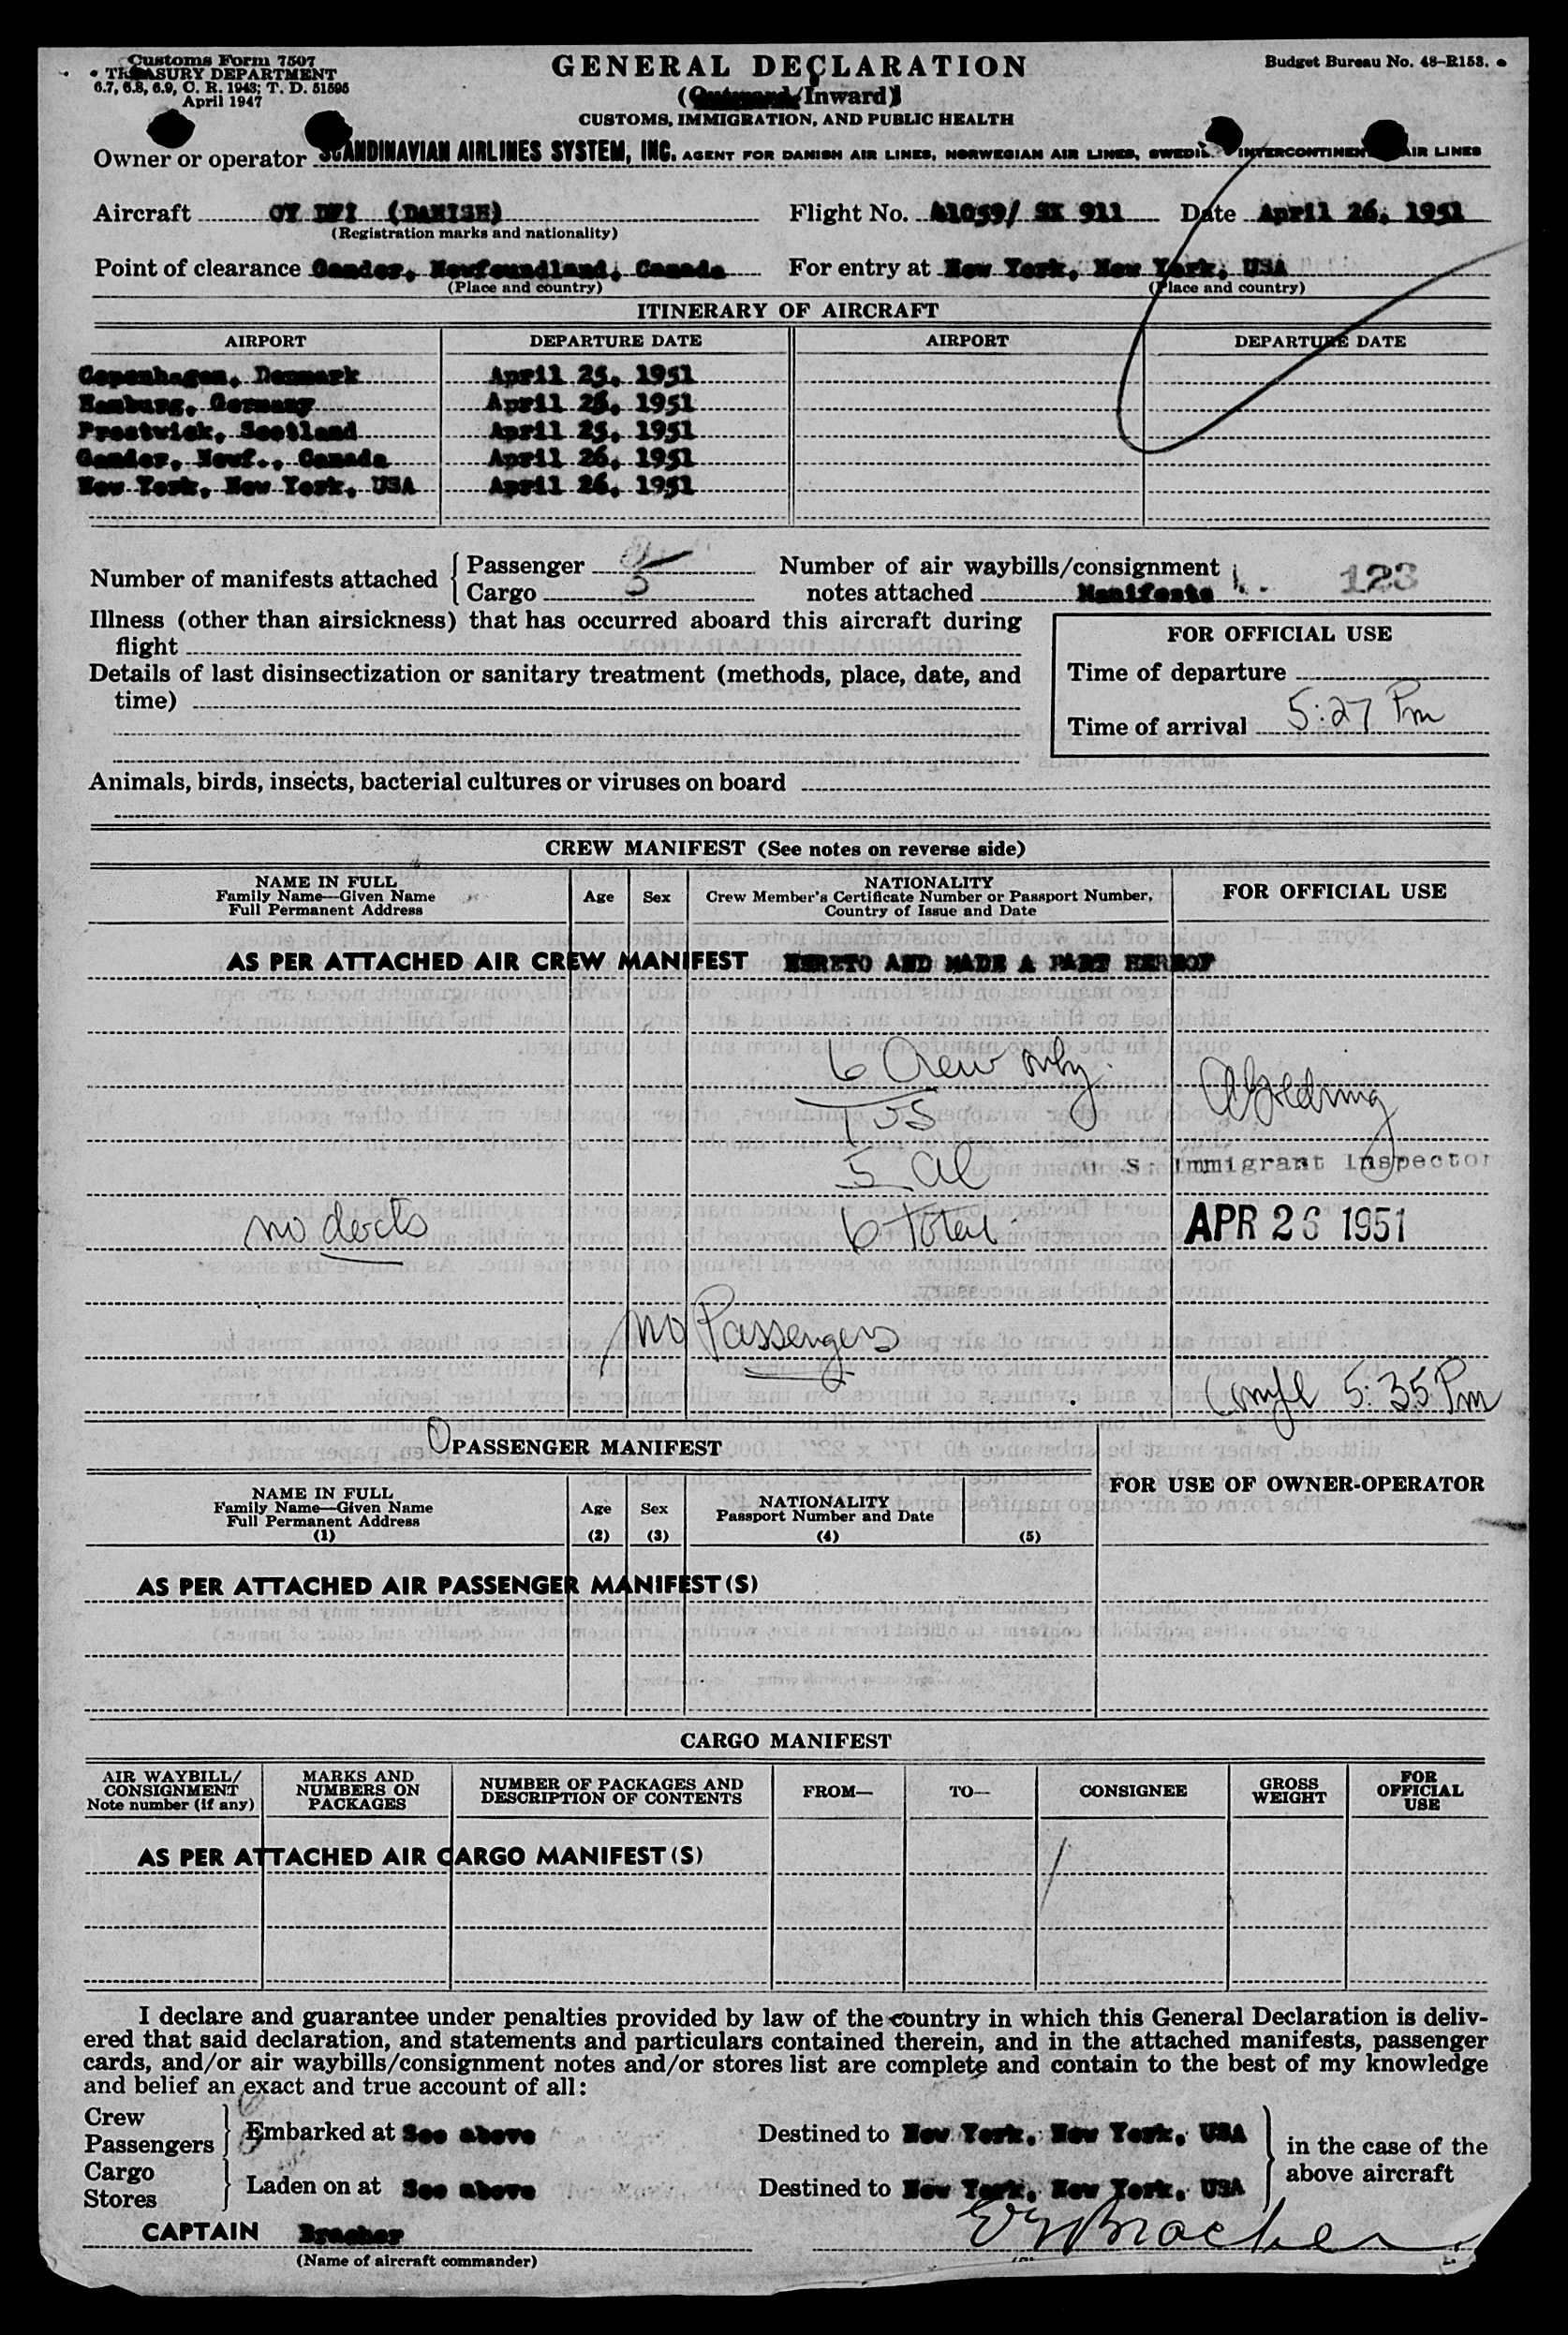 Customs Form 7507
TREASURY DEPARTMENT
6.7, 6.8, 6.9, C. R. 1943; T. D. 51595
April 1947
GENERAL DECLARATION
(Outward/Inward)
CUSTOMS, IMMIGRATION, AND PUBLIC HEALTH
Budget Bureau No. 48-R153.
Owner or operator SCANDINAVIAN AIRLINES SYSTEM, INC. AGENT FOR DANISH AIR LINES, NORWEGIAN AIR LINES, SWEDISH INTERCONTINENTAL AIR LINES
Aircraft OY DFI (DANISH) Flight No. A1059/ SK 911 Date April 26, 1951
(Registration marks and nationality)
Point of clearance Gander, Newfoundland, Canada For entry at New York, New York, USA
(Place and country) (Place and country)
ITINERARY OF AIRCRAFT
AIRPORT DEPARTURE DATE AIRPORT DEPARTURE DATE
Copenhagen, Denmark April 25, 1951
Hamburg, Germany April 25, 1951
Prestwick, Scotland April 25, 1951
Gander, Newf., Canada April 26, 1951
New York, New York, USA April 26, 1951
Number of manifests attached { Passenger
Cargo 5
Number of air waybills/consignment
notes attached Manifests 123
Illness (other than airsickness) that has occurred aboard this aircraft during
flight
Details of last disinsectization or sanitary treatment (methods, place, date, and
time)
FOR OFFICIAL USE
Time of departure
Time of arrival 5:27 Pm
Animals, birds, insects, bacterial cultures or viruses on board
CREW MANIFEST (See notes on reverse side)
NAME IN FULL
Family Name—Given Name
Full Permanent Address
Age Sex
NATIONALITY
Crew Member's Certificate Number or Passport Number,
Country of Issue and Date
FOR OFFICIAL USE
AS PER ATTACHED AIR CREW MANIFEST HERETO AND MADE A PART HEREOF
6 Crew only.
1 US
5 al
U. S. Immigrant Inspector
no docts 6 Total APR 26 1951
no Passengers
Compl 5:35 Pm
0 PASSENGER MANIFEST
NAME IN FULL
Family Name—Given Name
Full Permanent Address
(1)
Age
(2)
Sex
(3)
NATIONALITY
Passport Number and Date
(4) (5)
FOR USE OF OWNER-OPERATOR
AS PER ATTACHED AIR PASSENGER MANIFEST(S)
CARGO MANIFEST
AIR WAYBILL/
CONSIGNMENT
Note number (if any)
MARKS AND
NUMBERS ON
PACKAGES
NUMBER OF PACKAGES AND
DESCRIPTION OF CONTENTS
FROM— TO— CONSIGNEE
GROSS
WEIGHT
FOR
OFFICIAL
USE
AS PER ATTACHED AIR CARGO MANIFEST(S)
I declare and guarantee under penalties provided by law of the country in which this General Declaration is deliv-
ered that said declaration, and statements and particulars contained therein, and in the attached manifests, passenger
cards, and/or air waybills/consignment notes and/or stores list are complete and contain to the best of my knowledge
and belief an exact and true account of all:
Crew
Passengers } Embarked at See above Destined to New York, New York, USA
Cargo
Stores } Laden on at See above Destined to New York, New York, USA
} in the case of the
above aircraft
CAPTAIN Bracher
(Name of aircraft commander)
Bracher